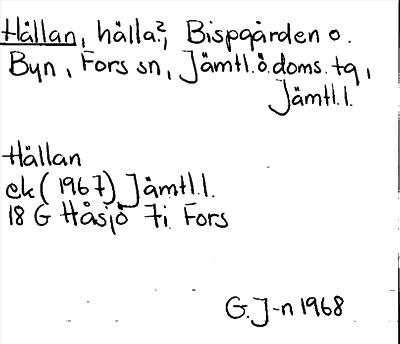 Hällan, hälla?, Bispgården o.
Byn, Fors sn, Jämtl.ö.doms. tg,
Jämtl.l.
Hällan
ek (1967) Jämtl.l.
18 G Håsjö 7i Fors
G.J-n 1968